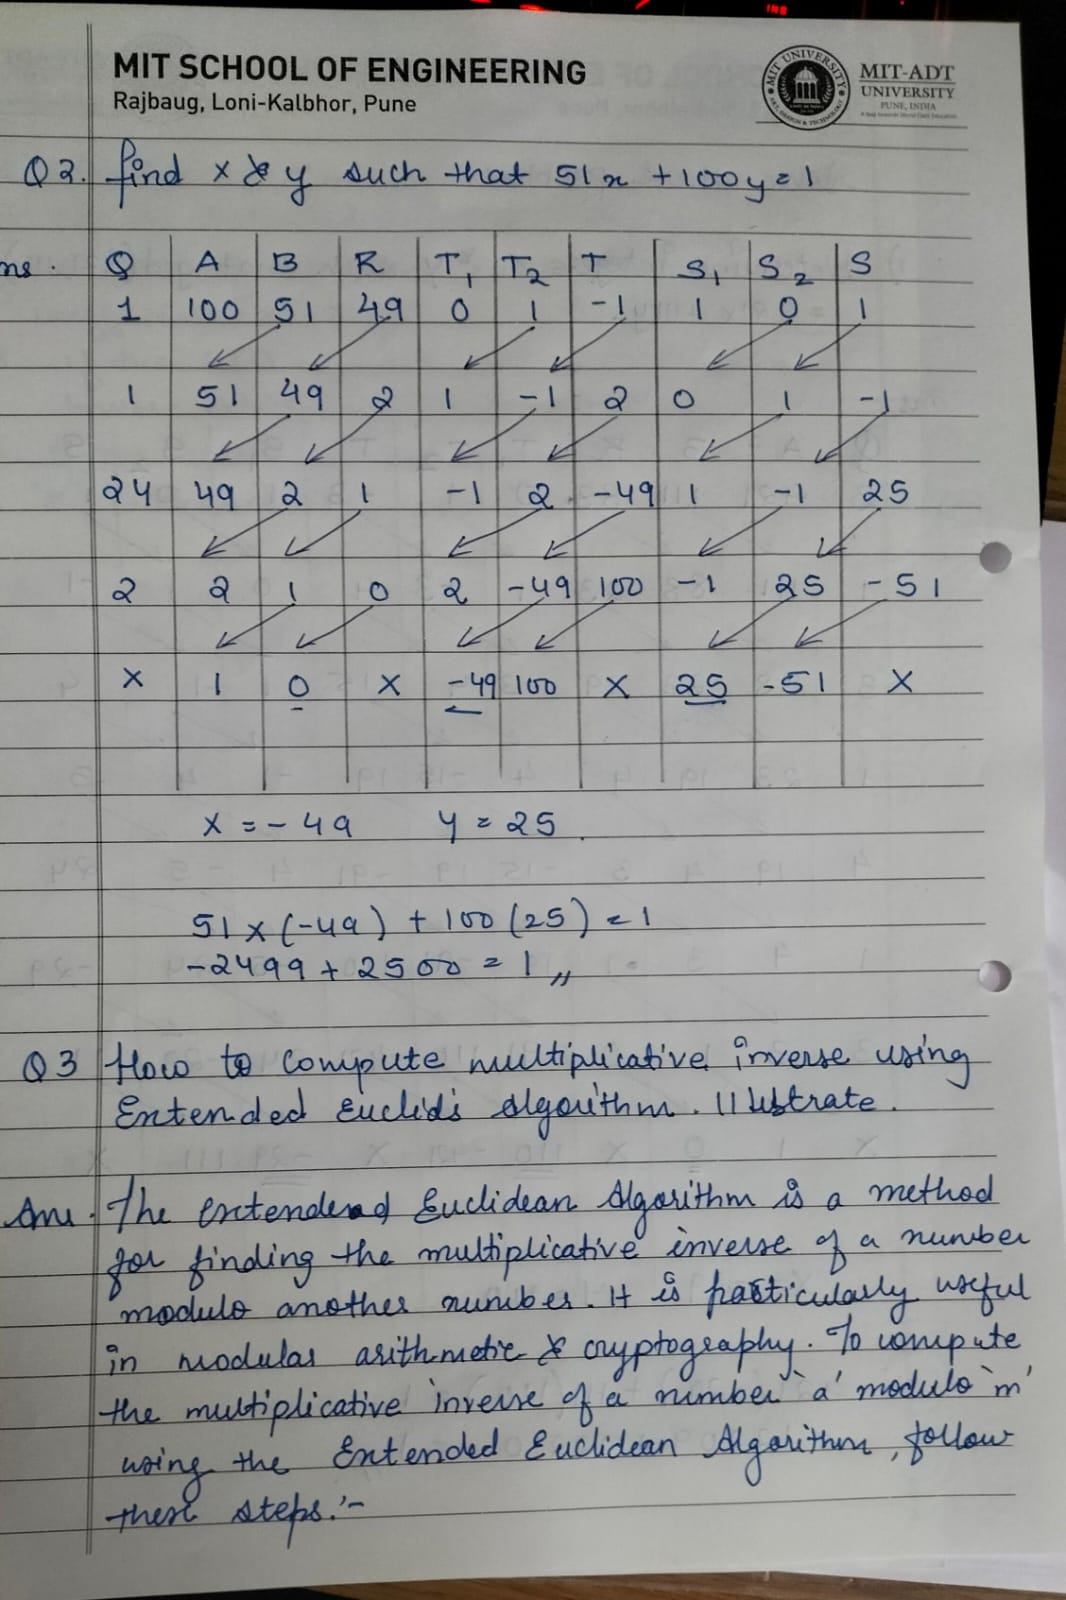 MIT SCHOOL OF ENGINEERING
Rajbaug, Loni-Kalbhor, Pune
MIT UNIVERSITY
MIT-ADT
UNIVERSITY
PUNE, INDIA
Q2. find x & y such that 51x + 100y = 1
ns. Q A B R T1 T2 T S1 S2 S
1 100 51 49 0 1 -1 1 0 1
1 51 49 2 1 -1 2 0 1 -1
24 49 2 1 -1 2 -49 1 -1 25
2 2 1 0 2 -49 100 -1 25 -51
X 1 0 X -49 100 X 25 -51 X
x = -49 y = 25.
51 x (-49) + 100 (25) = 1
-2499 + 2500 = 1 ,,
Q3 How to compute multiplicative inverse using
Extended Euclid's Algorithm. Illustrate.
Ans. The extended Euclidean Algorithm is a method
for finding the multiplicative inverse of a number
modulo another number. It is particularly useful
in modular arithmetic & cryptography. To compute
the multiplicative inverse of a number 'a' modulo 'm'
using the Extended Euclidean Algorithm, follow
these steps:-